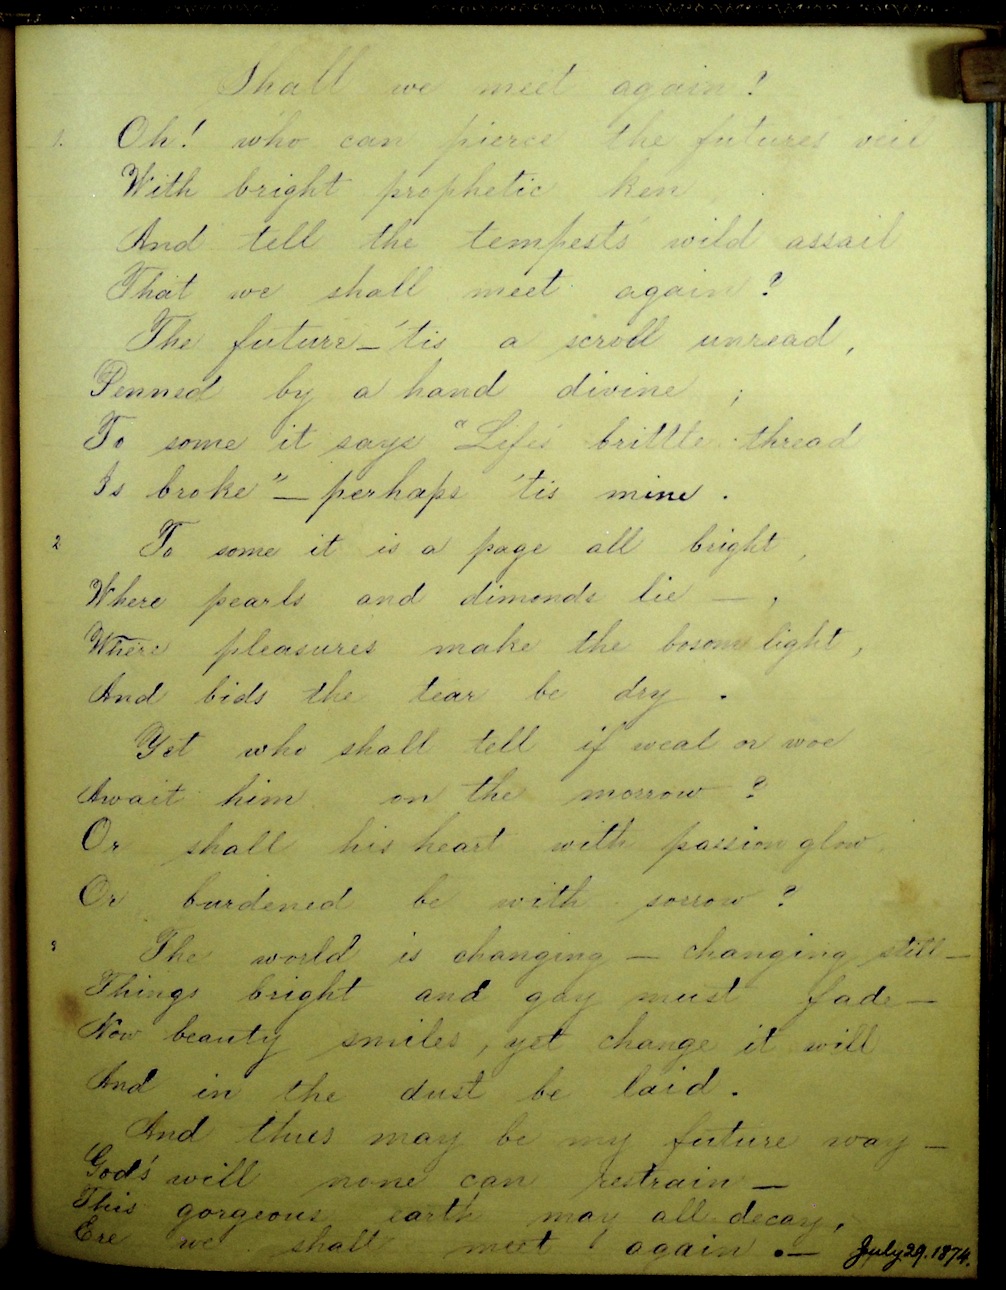 Shall we meet again?
1. Oh! who can pierce the futures veil
With bright prophetic ken
And tell the tempests wild assail
That we shall meet again?
The future – 'tis a scroll unread,
Penned by a hand divine ;
To some it says "Life's brittle thread
Is broke" – perhaps 'tis mine .
2 To some it is a page all bright ,
Where pearls and dimonds lie – ,
Where pleasures make the bosom light ,
And bids the tear be dry .
Yet who shall tell if weal or woe
Await him on the morrow ?
Or shall his heart with passion glow
Or burdened be with sorrow ?
3 The world is changing – changing still –
Things bright and gay must fade –
Now beauty smiles , yet change it will
And in the dust be laid .
And thus may be my future way –
God's will none can restrain –
This gorgeous earth may all decay,
Ere we shall meet again . –
July 29. 1874.